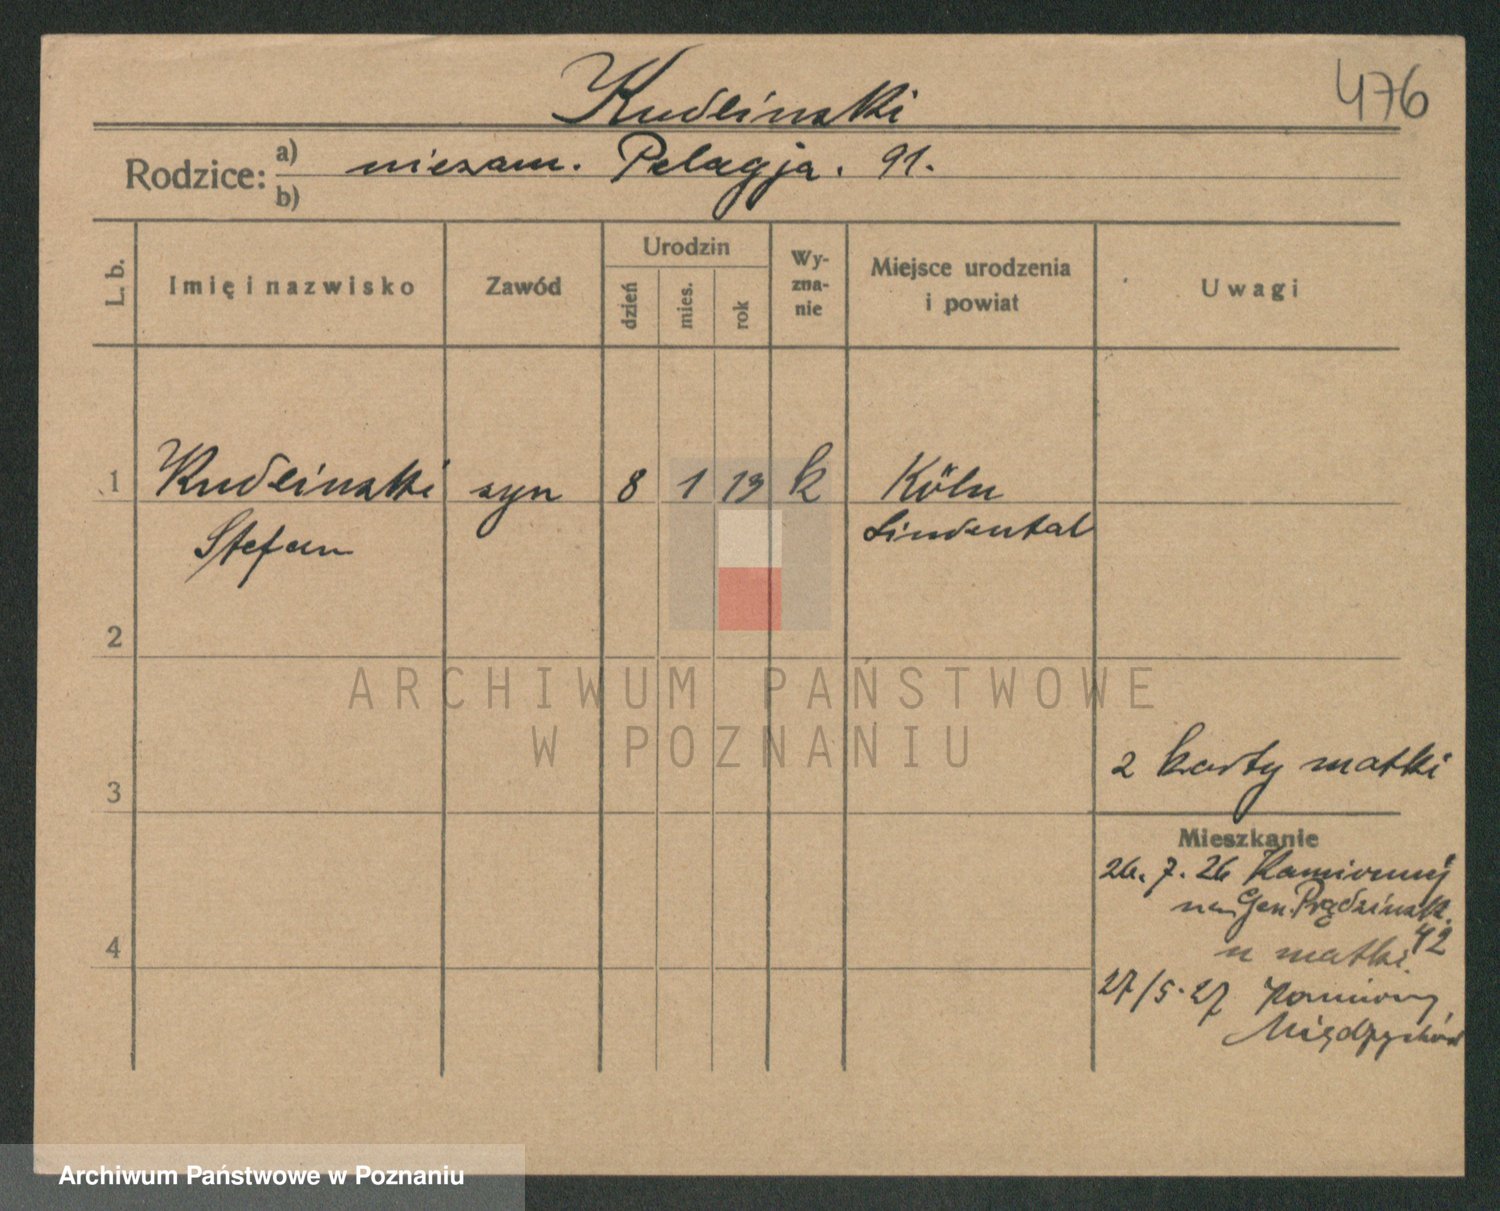 476
Kudlinski
Rodzice: a) niezam. Pelagja. 91.
b)
L. b.
Imię i nazwisko
Zawód
Urodzin
dzień
mies.
rok
Wy-
zna-
nie
Miejsce urodzenia
i powiat
Uwagi
1 Kudlinski syn 8 1 19 k Köln
Stefan Lindental
2
3
2 karty matki
Mieszkanie
26. 7. 26 Kamionny
Gen. Prądzinsk.
42
u matki.
4
27/5. 27 Kamionny
Międzychód
ARCHIWUM PAŃSTWOWE
W POZNANIU
Archiwum Państwowe w Poznaniu